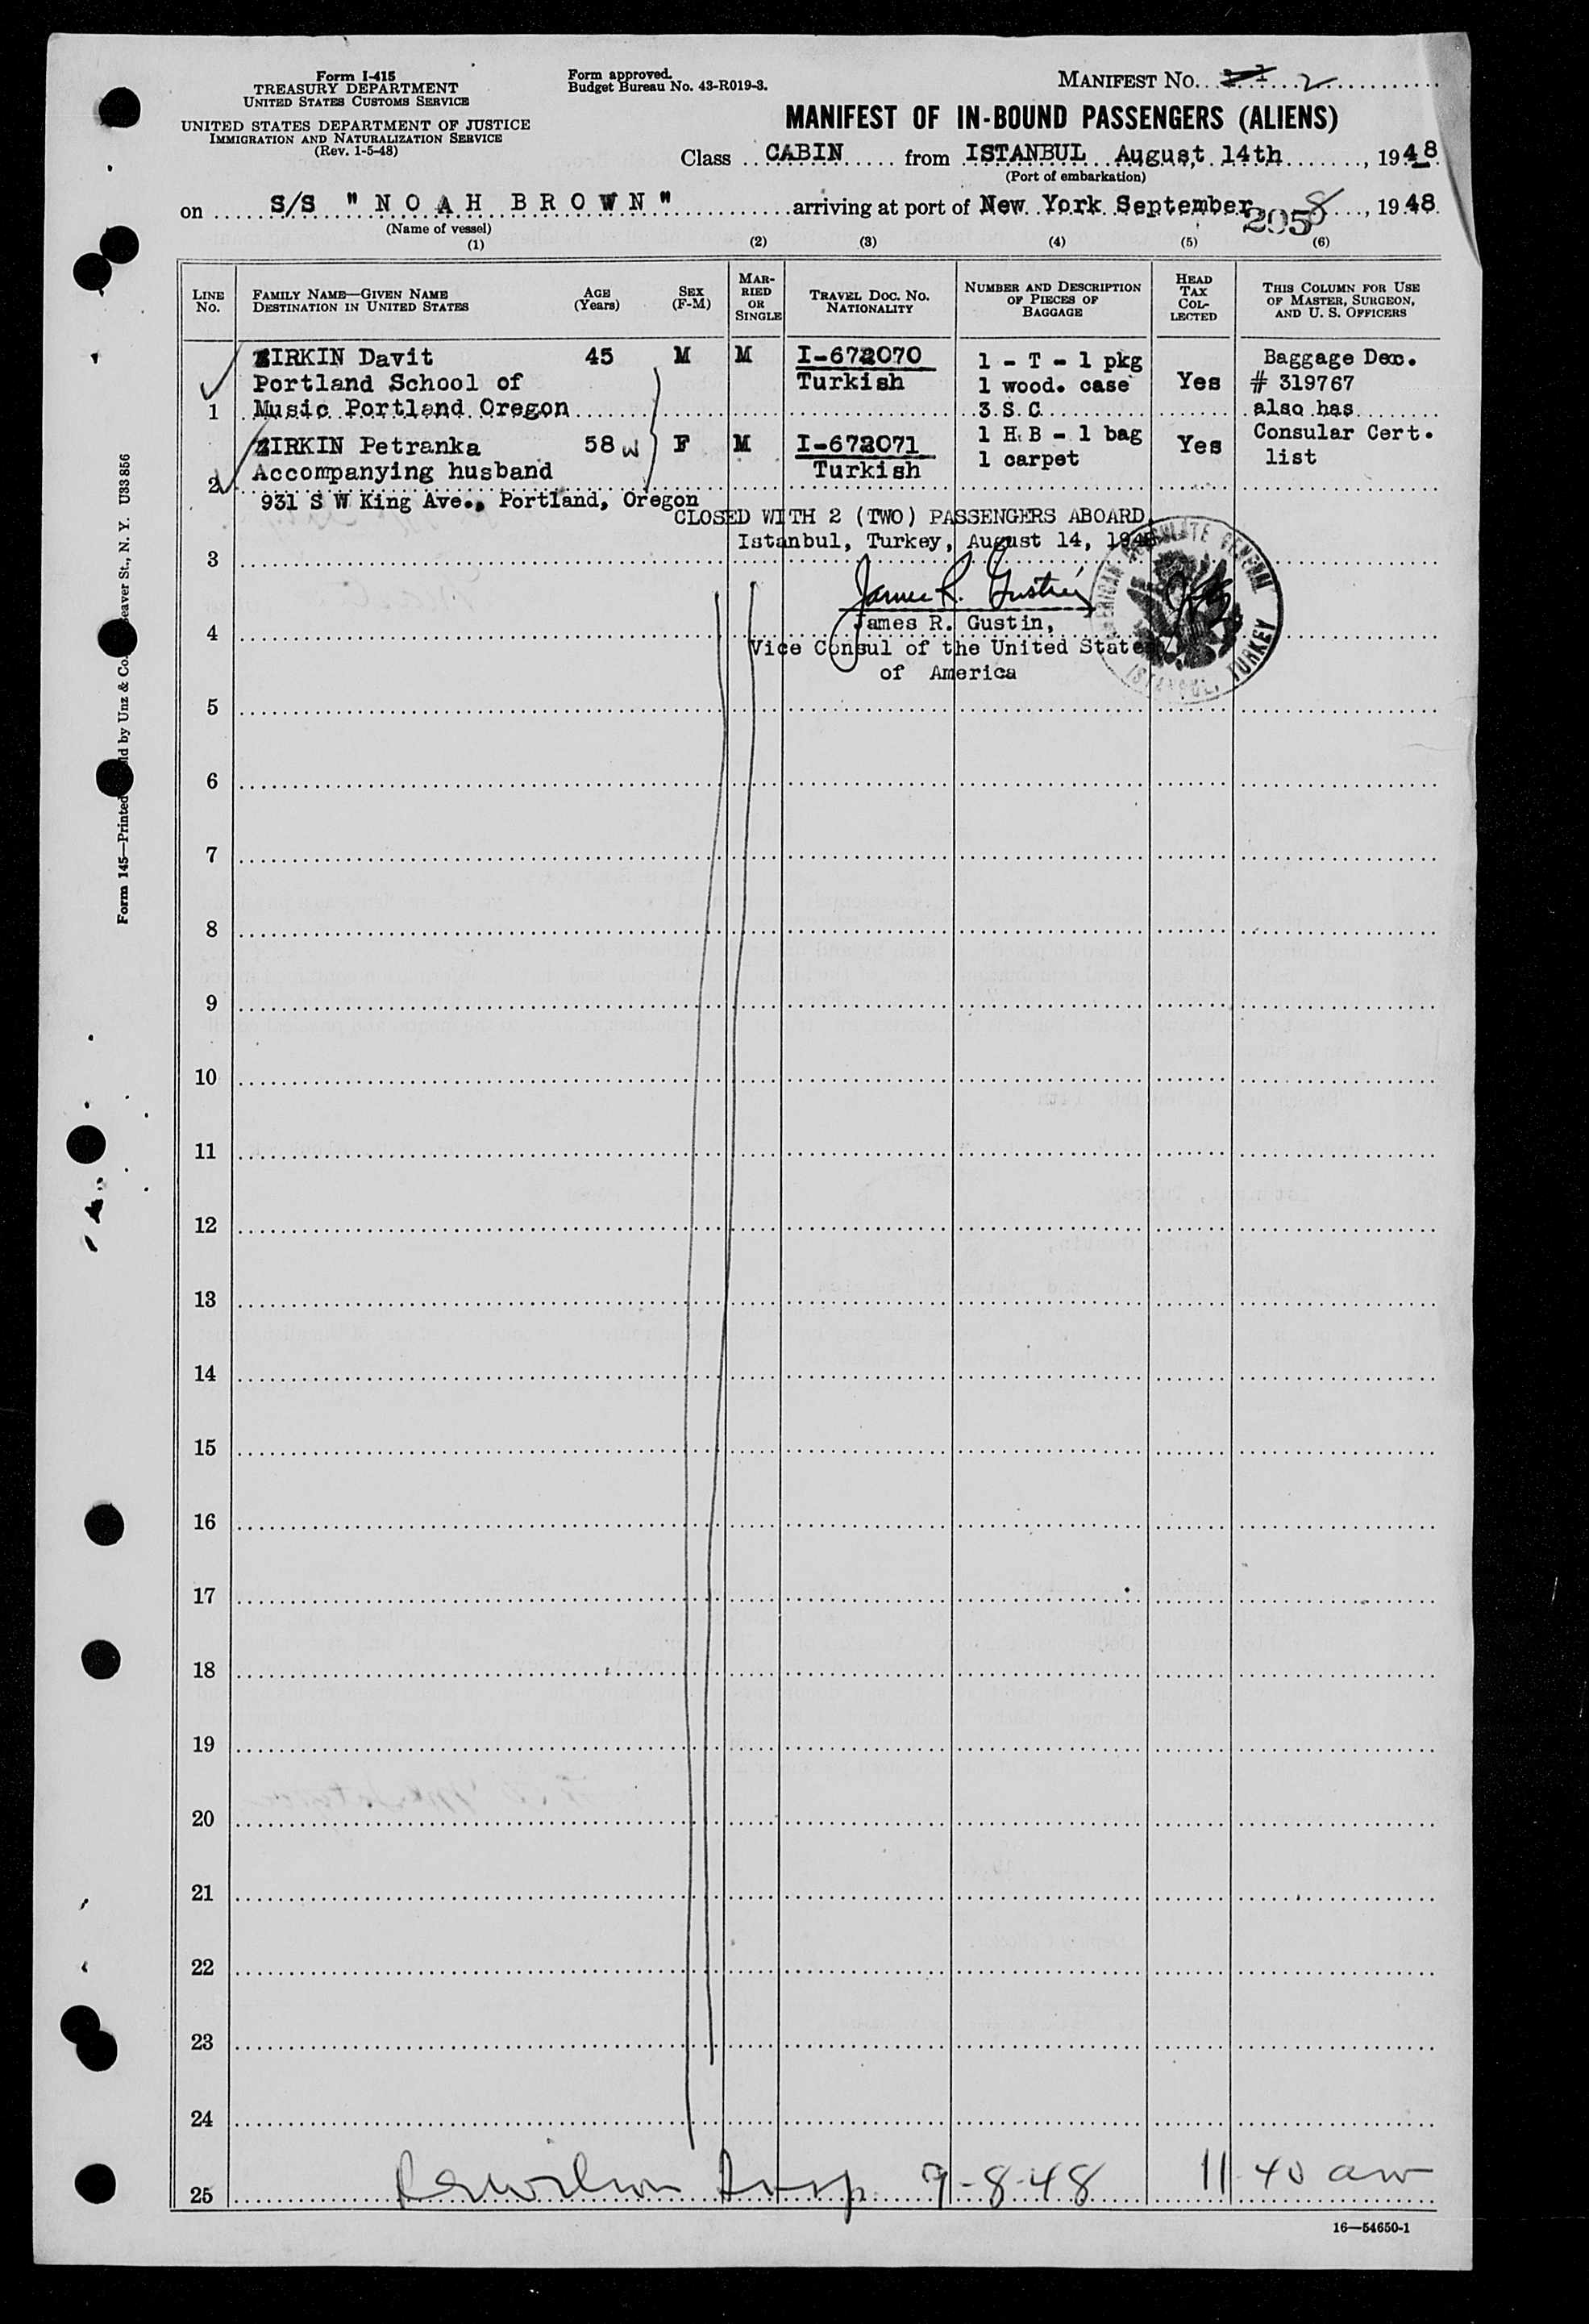 Form I-415
TREASURY DEPARTMENT
UNITED STATES CUSTOMS SERVICE
UNITED STATES DEPARTMENT OF JUSTICE
IMMIGRATION AND NATURALIZATION SERVICE
(Rev. 1-5-48)
Form approved.
Budget Bureau No. 43-R019-3.
MANIFEST NO. 2
MANIFEST OF IN-BOUND PASSENGERS (ALIENS)
Class CABIN from ISTANBUL August, 14th, 1948
(Port of embarkation)
on S/S " N O A H B R O W N " arriving at port of New York September 8, 1948
(Name of vessel)
2050
(1) (2) (3) (4) (5) (6)
LINE NO.
FAMILY NAME—GIVEN NAME
DESTINATION IN UNITED STATES
AGE (Years)
SEX (F-M)
MARRIED OR SINGLE
TRAVEL DOC. NO.
NATIONALITY
NUMBER AND DESCRIPTION OF PIECES OF BAGGAGE
HEAD TAX COLLECTED
THIS COLUMN FOR USE OF MASTER, SURGEON, AND U. S. OFFICERS
ZIRKIN Davit 45 M M I-672070 1 - T - 1 pkg Baggage Dec.
Portland School of Turkish 1 wood. case Yes # 319767
1 Music Portland Oregon 3 S C also has
ZIRKIN Petranka 58 W F M I-672071 1 H B - 1 bag Yes Consular Cert.
2 Accompanying husband Turkish 1 carpet list
931 S W King Ave., Portland, Oregon
CLOSED WITH 2 (TWO) PASSENGERS ABOARD
Istanbul, Turkey, August 14, 1948
3
James R. Gustin
4
James R. Gustin,
Vice Consul of the United States
of America
AMERICAN CONSULATE GENERAL
ISTANBUL, TURKEY
5
6
7
8
9
10
11
12
13
14
15
16
17
18
19
20
21
22
23
24
25 Insp 9-8-48 11 40 am
16—54650-1
Form 145—Printed
ld by Unz & Co.
eaver St., N. Y. U33856